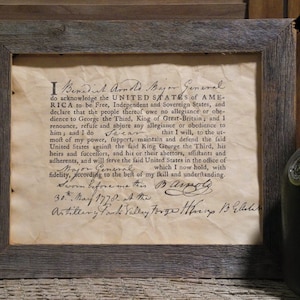 I Benedict Arnold Major General
do acknowledge the UNITED STATES of AME-
RICA to be Free, Independent and Sovereign States, and
declare that the people thereof owe no allegiance or obe-
dience to George the Third, King of Great-Britain; and I
renounce, refuse and abjure any allegiance or obedience to
him; and I do Swear that I will, to the ut-
most of my power, support, maintain and defend the said
United States against the said King George the Third, his
heirs and successors, and his or their abettors, assistants and
adherents, and will serve the said United States in the office of
Major General which I now hold, with
fidelity, according to the best of my skill and understanding.
Sworn before me this B Arnold
30th May 1778 at the
Artillery Park Valley Forge H Knox B G Artillery